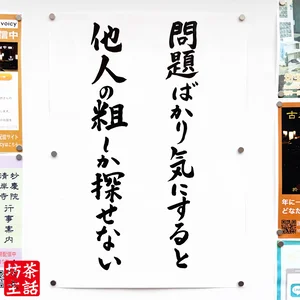 問題ばかり気にすると
他人の粗しか探せない
voicy
信中
妙慶院
清岸寺
行事案内
坊主
茶話